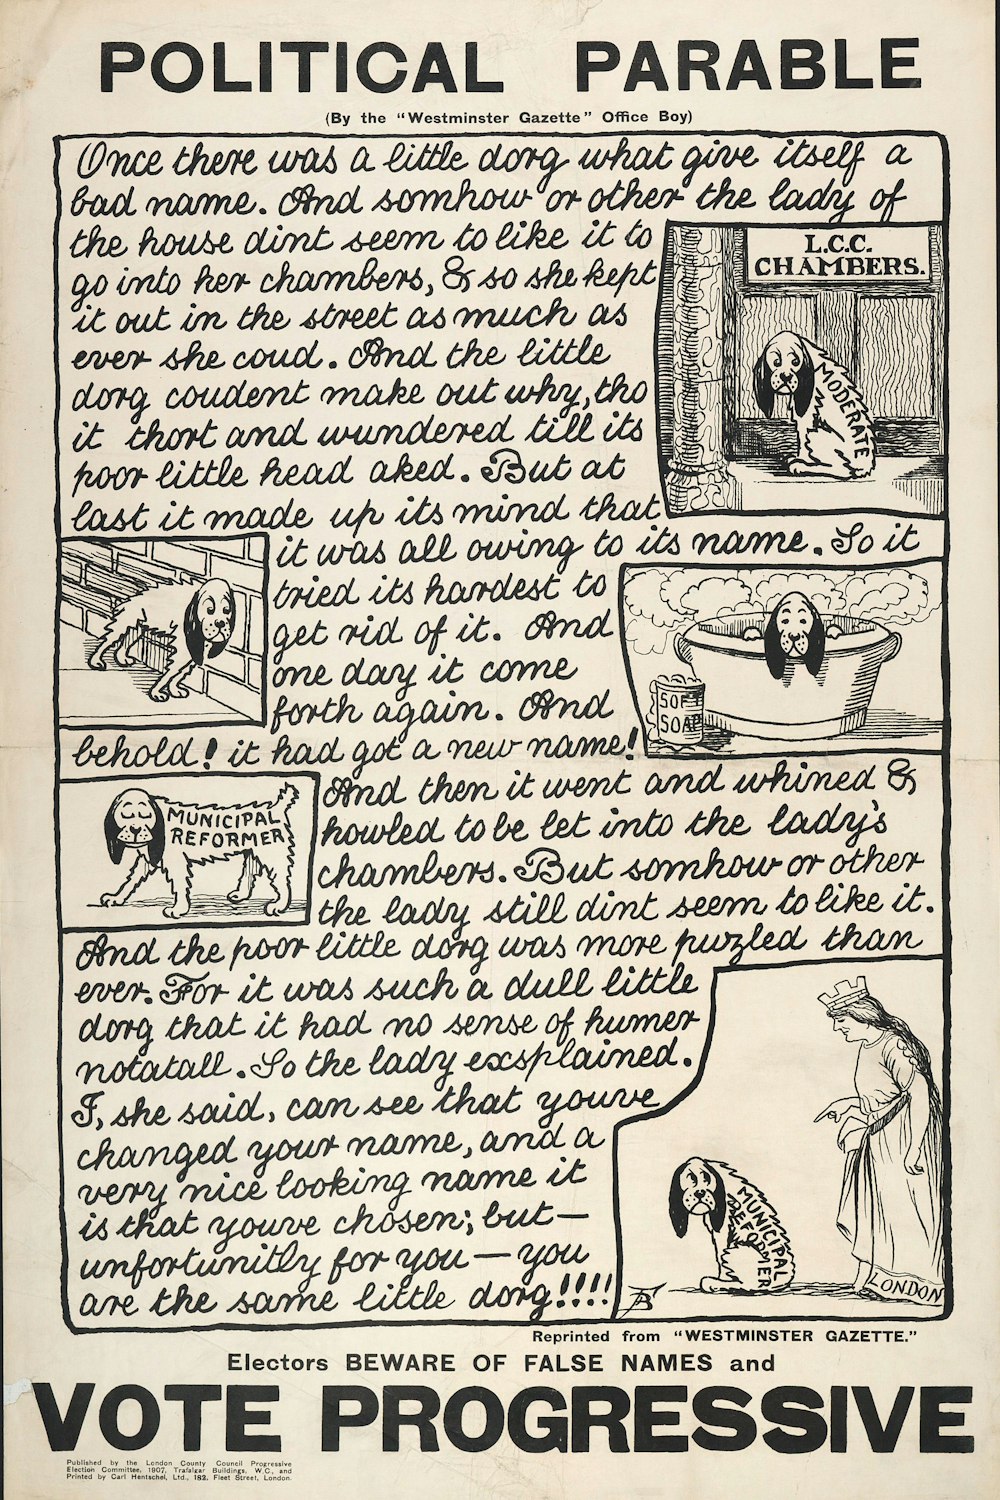 POLITICAL PARABLE
(By the "Westminster Gazette" Office Boy)
Once there was a little dorg what give itself a
bad name. And somhow or other the lady of
the house dint seem to like it to
go into her chambers, & so she kept
it out in the street as much as
ever she coud. And the little
dorg coudent make out why, tho
it thort and wundered till its
poor little head aked. But at
last it made up its mind that
L.C.C.
CHAMBERS.
MODERATE
it was all owing to its name. So it
tried its hardest to
get rid of it. And
one day it come
forth again. And
behold! it had got a new name!
SOFT
SOAP
And then it went and whined &
howled to be let into the lady's
chambers. But somhow or other
the lady still dint seem to like it.
MUNICIPAL
REFORMER
And the poor little dorg was more puzled than
ever. For it was such a dull little
dorg that it had no sense of humer
notatall. So the lady exsplained.
I, she said, can see that youve
changed your name, and a
very nice looking name it
is that youve chosen; but—
unfortunitly for you — you
are the same little dorg!!!!
MUNICIPAL
REFORMER
LONDON
Reprinted from "WESTMINSTER GAZETTE."
Electors BEWARE OF FALSE NAMES and
VOTE PROGRESSIVE
Published by the London County Council Progressive
Election Committee, 1907, Trafalgar Buildings, W.C., and
Printed by Carl Hentschel, Ltd., 182, Fleet Street, London.